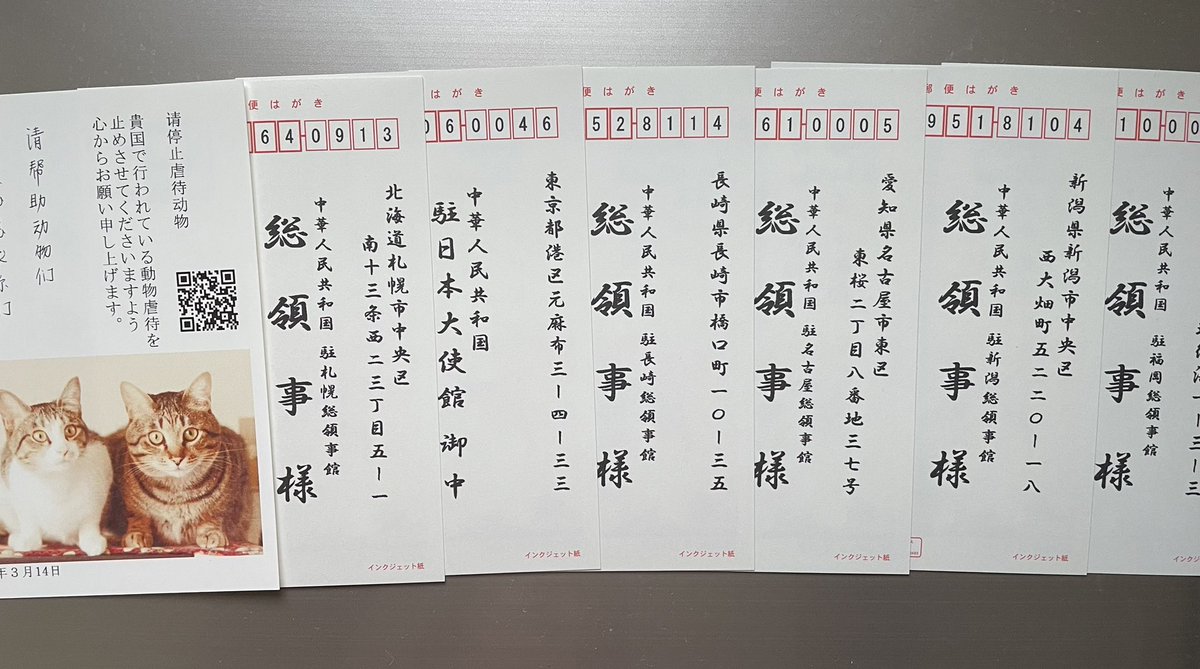 请停止虐待动物
貴国で行われている動物虐待を
止めさせてくださいますよう
心からお願い申し上げます。
请帮助动物们
年3月14日
便はがき
64-0913
北海道札幌市中央区
南十三条西二三丁目五ー一
中華人民共和国 駐札幌総領事館
総領事様
インクジェット紙
はがき
06-0046
東京都港区元麻布三ー四ー三三
中華人民共和国
駐日本大使館 御中
インクジェット紙
便はがき
52-8114
長崎県長崎市橋口町一〇ー三五
中華人民共和国 駐長崎総領事館
総領事様
インクジェット紙
便はがき
61-0005
愛知県名古屋市東区
東桜二丁目八番地三七号
中華人民共和国 駐名古屋総領事館
総領事様
インクジェット紙
郵便はがき
951-8104
新潟県新潟市中央区
西大畑町五二二〇ー一八
中華人民共和国 駐新潟総領事館
総領事様
インクジェット紙
便はがき
10-00
中華人民共和国 駐福岡総領事館
総領事様
インクジェット紙